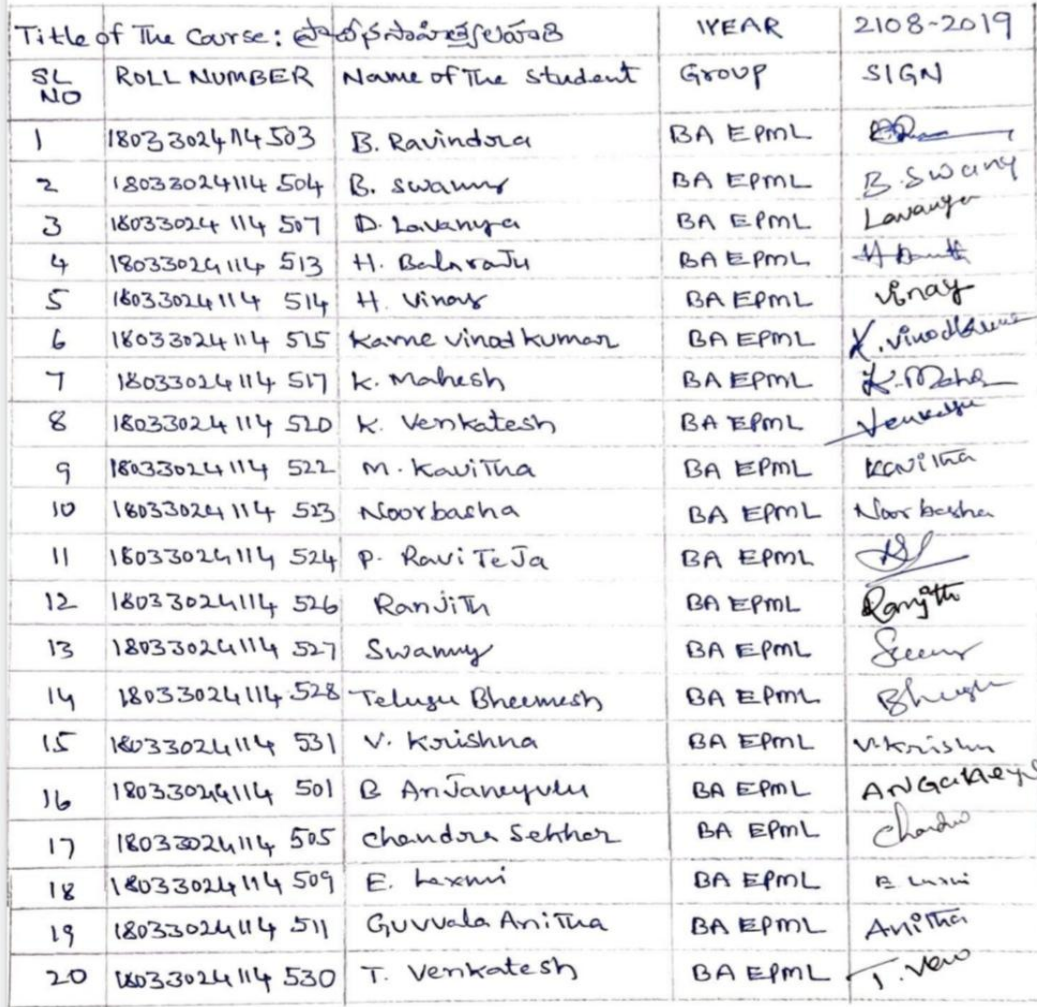 Title of The Course: IYEAR 2108-2019
SL NO ROLL NUMBER Name of The Student Group SIGN
1 18033024114503 B. Ravindra BA EPML
2 18033024114 504 B. Swamy BA EPML B. Swamy
3 18033024 114 507 D. Lavanya BA EPML Lavanya
4 18033024114 513 H. Balaraju BA EPML
5 18033024114 514 H. Vinay BA EPML Vinay
6 18033024114 515 Karne Vinod kumar BA EPML K. Vinodkumar
7 18033024114 517 K. Mahesh BA EPML K. Mahe
8 18033024114 520 K. Venkatesh BA EPML
9 18033024114 522 M. KaviTha BA EPML KaviTha
10 18033024114 523 Noorbasha BA EPML Noor basha
11 18033024114 524 P. Ravi TeJa BA EPML
12 18033024114 526 RanJiTh BA EPML Ranjith
13 18033024114 527 Swamy BA EPML
14 18033024114 528 Telugu Bheemesh BA EPML
15 18033024114 531 V. Krishna BA EPML V. Krishn
16 18033024114 501 B AnJaneyulu BA EPML
17 18033024114 505 Chandra Sekhar BA EPML
18 18033024114 509 E. Laxmi BA EPML
19 18033024114 511 Guvvala AniTha BA EPML AniTha
20 18033024114 530 T. Venkatesh BA EPML